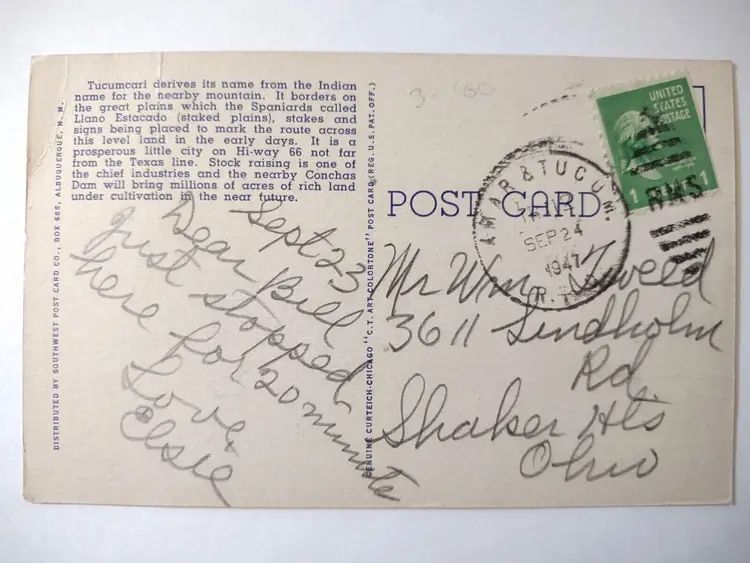 Tucumcari derives its name from the Indian
name for the nearby mountain. It borders on
the great plains which the Spaniards called
Llano Estacado (staked plains), stakes and
signs being placed to mark the route across
this level land in the early days. It is a
prosperous little city on Hi-way 66 not far
from the Texas line. Stock raising is one of
the chief industries and the nearby Conchas
Dam will bring millions of acres of rich land
under cultivation in the near future.
DISTRIBUTED BY SOUTHWEST POST CARD CO., BOX 685, ALBUQUERQUE, N. M.
Sept 23
Dear Bill
Just stopped
here for 20 minute
Love,
Elsie
GENUINE CURTEICH-CHICAGO "C.T. ART-COLORTONE" POST CARD (REG. U.S. PAT. OFF.)
UNITED
STATES
POSTAGE
1 1
AMAR & TUCUM.
SEP 24
1941
RMS
POST CARD
Mr Wm
3611 Lindholm
Rd
Shaker Hts
Ohio